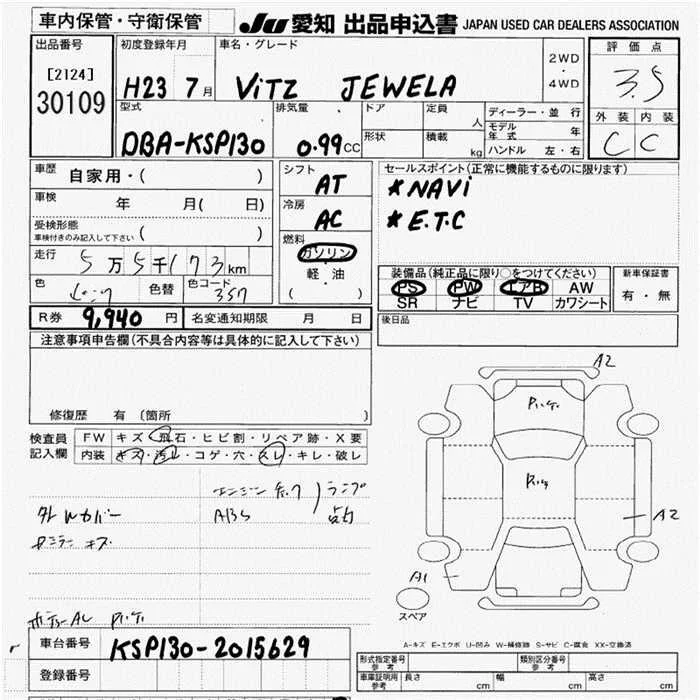 車内保管・守衛保管
JU 愛知 出品申込書 JAPAN USED CAR DEALERS ASSOCIATION
出品番号
[2124]
30109
初度登録年月
H23 7月
車名・グレード
ViTZ JEWELA
2WD
・
4WD
評価点
3.5
外装 内装
C C
型式
DBA-KSP130
排気量
0.99CC
ドア
定員
人
形状
積載
kg
ディーラー・並行
モデル年式 年
ハンドル 左・右
車歴
自家用・( )
車検
年 月( 日)
受検形態
車検付きのみ記入して下さい ( )
走行
5万5千173km
色
色替
色コード
シフト
AT
冷房
AC
燃料
ガソリン
・
軽・油
( )
セールスポイント(正常に機能するものに限ります)
*NAVi
*E.T.C
装備品(純正品に限り○をつけてください)
PS PW エアB AW
SR ナビ TV カワシート
新車保証書
有・無
R券 9,940 円
名変通知期限 月 日
後日品
注意事項申告欄(不具合内容等は具体的に記入して下さい)
修復歴 有(箇所 )
検査員
記入欄
FW キズ・飛石・ヒビ割・リペア跡・X要
内装 キズ・汚レ・コゲ・穴・スレ・キレ・破レ
エンジンチェック
ABS
ランプ
点灯
外Wカバー
キズ
A2
A2
A1
スペア
A-キズ E-エクボ U-凹み W-補修跡 S-サビ C-腐食 XX-交換済
車台番号
KSP130-2015629
登録番号
形式指定番号
参考
類別区分番号
参考
車庫証明用
参考
長さ cm
幅 cm
高さ cm